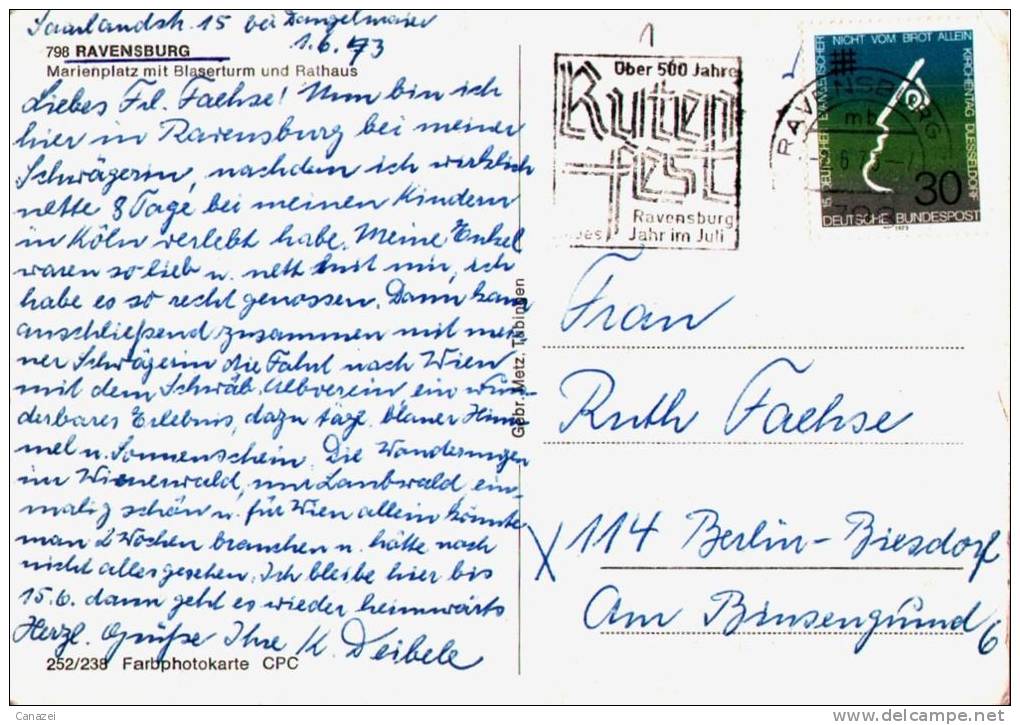 Saarlandstr. 15 bei Dangelmaier
1.6.73
798 RAVENSBURG
Marienplatz mit Blaserturm und Rathaus
Liebes Frl. Faehse! Nun bin ich
hier in Ravensburg bei meiner
Schwägerin, nachdem ich wirklich
nette 8 Tage bei meinen Kindern
in Köln verlebt habe. Meine Enkel
waren so lieb u. nett mit mir, ich
habe es so recht genossen. Dann kam
anschließend zusammen mit mei-
ner Schwägerin die Fahrt nach Wien
mit dem Schwäb. Albverein, ein wun-
derbares Erlebnis, dazu tägl. blauer Him-
mel u. Sonnenschein. Die Wanderungen
im Wienerwald, nur Laubwald, ein-
malig schön u. für Wien allein könnte
man 2 Wochen brauchen u. hätte noch
nicht alles gesehen. Ich bleibe hier bis
15.6. dann geht es wieder heimwärts
Herzl. Grüße Ihre K. Deibele
252/238 Farbphotokarte CPC
Gebr. Metz, Tübingen
Über 500 Jahre
Ruten
fest
Ravensburg
Jahr im Juli
RAVENSBURG
mb
15. DEUTSCHER EVANGELISCHER KIRCHENTAG DUESSELDORF
NICHT VOM BROT ALLEIN
30
DEUTSCHE BUNDESPOST
1973
Frau
Ruth Faehse
114 Berlin-Biesdorf
Am Binsengrund 6
Canazei
delcampe.net